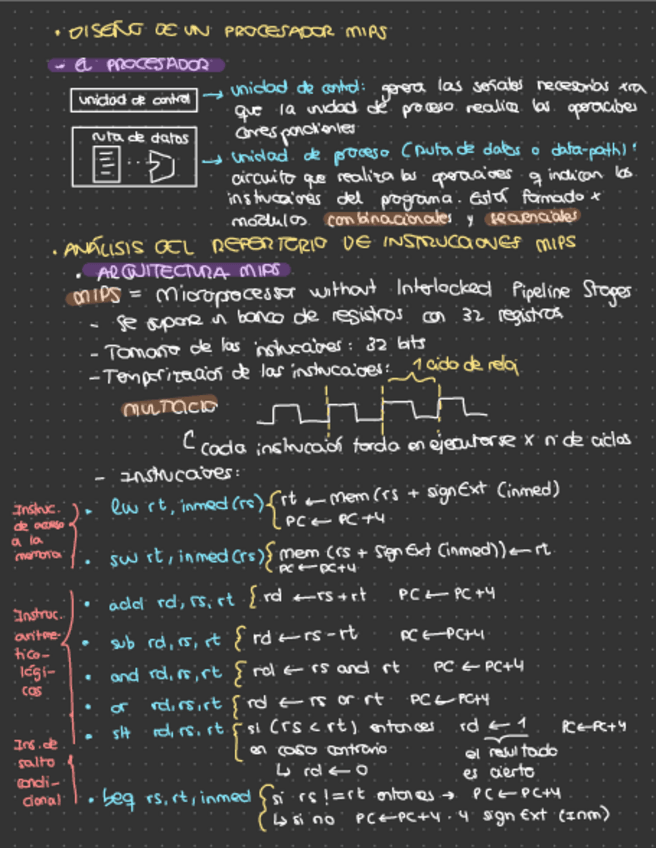 • DISEÑO DE UN PROCESADOR MIPS
- El PROCESADOR
unidad de control → unidad de control: genera las señales necesarias xra
que la unidad de proceso realiza las operaciones
correspondientes
ruta de datos → unidad de proceso (ruta de datos o data-path):
circuito que realiza las operaciones q indican las
instrucciones del programa. Está formado x
módulos combinacionales y secuenciales
• ANÁLISIS DEL REPERTORIO DE INSTRUCCIONES MIPS
• ARQUITECTURA MIPS
MIPS = Microprocessor without Interlocked Pipeline Stages
- Se supone un banco de registros con 32 registros
- Tamaño de las instrucciones: 32 bits
- Temporización de las instrucciones: 1 ciclo de reloj
MULTICICLO
cada instrucción tarda en ejecutarse x nº de ciclos
- Instrucciones:
Instruc. de acceso a la memoria
• lw rt, inmed(rs) { rt ← mem (rs + signExt (inmed)
PC ← PC+4
• sw rt, inmed(rs) { mem (rs + SignExt (inmed)) ← rt
PC ← PC+4
Instruc. aritmetico-lógicas
• add rd, rs, rt { rd ← rs + rt PC ← PC+4
• sub rd, rs, rt { rd ← rs - rt PC ← PC+4
• and rd, rs, rt { rd ← rs and rt PC ← PC+4
• or rd, rs, rt { rd ← rs or rt PC ← PC+4
• slt rd, rs, rt { si (rs < rt) entonces rd ← 1 PC ← PC+4
en caso contrario el resultado
↳ rd ← 0 es cierto
Ins. de salto condicional
• beq rs, rt, inmed { si rs != rt entonces → PC ← PC+4
↳ si no PC ← PC+4 · 4 sign Ext (Inm)